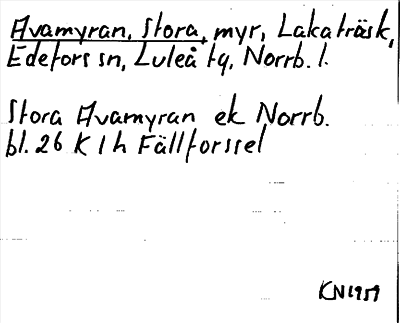 Avamyran, Stora, myr, Lakaträsk,
Edefors sn, Luleå tg, Norrb. l.
Stora Avamyran ek Norrb.
bl. 26 K 1 h Fällforssel
KN 1959